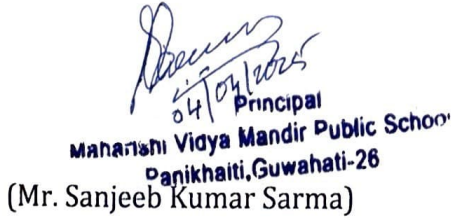 04/04/2025
Principal
Maharishi Vidya Mandir Public School
Panikhaiti,Guwahati-26
(Mr. Sanjeeb Kumar Sarma)